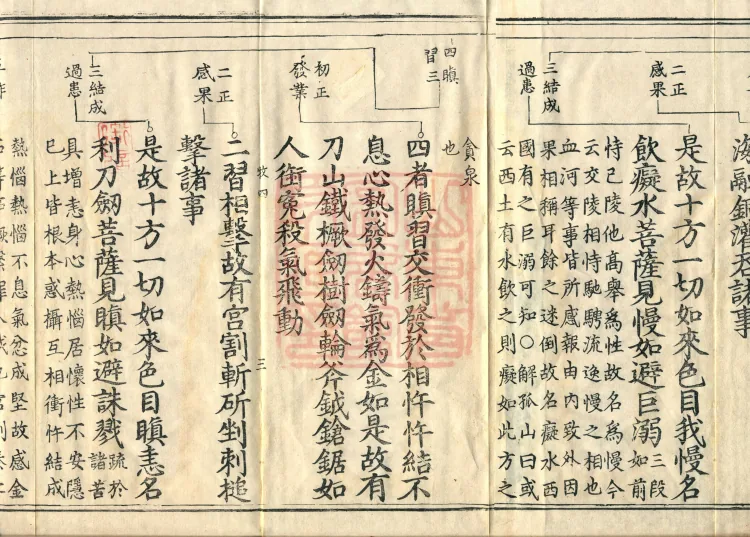 二正
感果
三結成
過患
是故十方一切如來色目我慢名
飲癡水菩薩見慢如避巨溺
三段
如前
恃己陵他高舉爲性故名爲慢今
云交陵相恃馳騁流逸慢之相也
血河等事皆所感報由內致外因
果相稱耳餘之迷倒故名癡水西
國有之巨溺可知〇解孤山曰或
云西土有水飲之則癡如此方之
貪泉
也
四瞋
習三
初正
發業
四者瞋習交衝發於相忤忤結不
息心熱發火鑄氣爲金如是故有
刀山鐵橛劒樹劒輪斧鉞鎗鋸如
人銜冤殺氣飛動
三
二正
感果
二習相擊故有宮割斬斫剉刺槌
擊諸事
三結成
過患
是故十方一切如來色目瞋恚名
利刀劒菩薩見瞋如避誅戮
疏於
諸苦
具增恚身心熱惱居懷性不安隱
巳上皆根本惑攝互相衝忤結成
熱惱熱惱不息氣愈成堅故感金